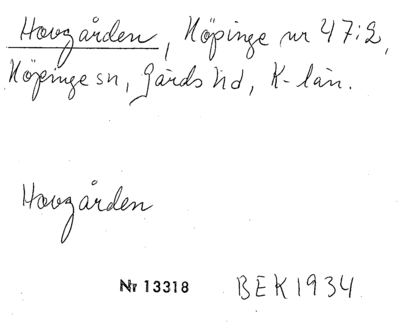 Hovgården, Köpinge nr 47:2,
Köpinge sn, Gärds hd, K-län.
Hovgården
Nr 13318 BEK1934